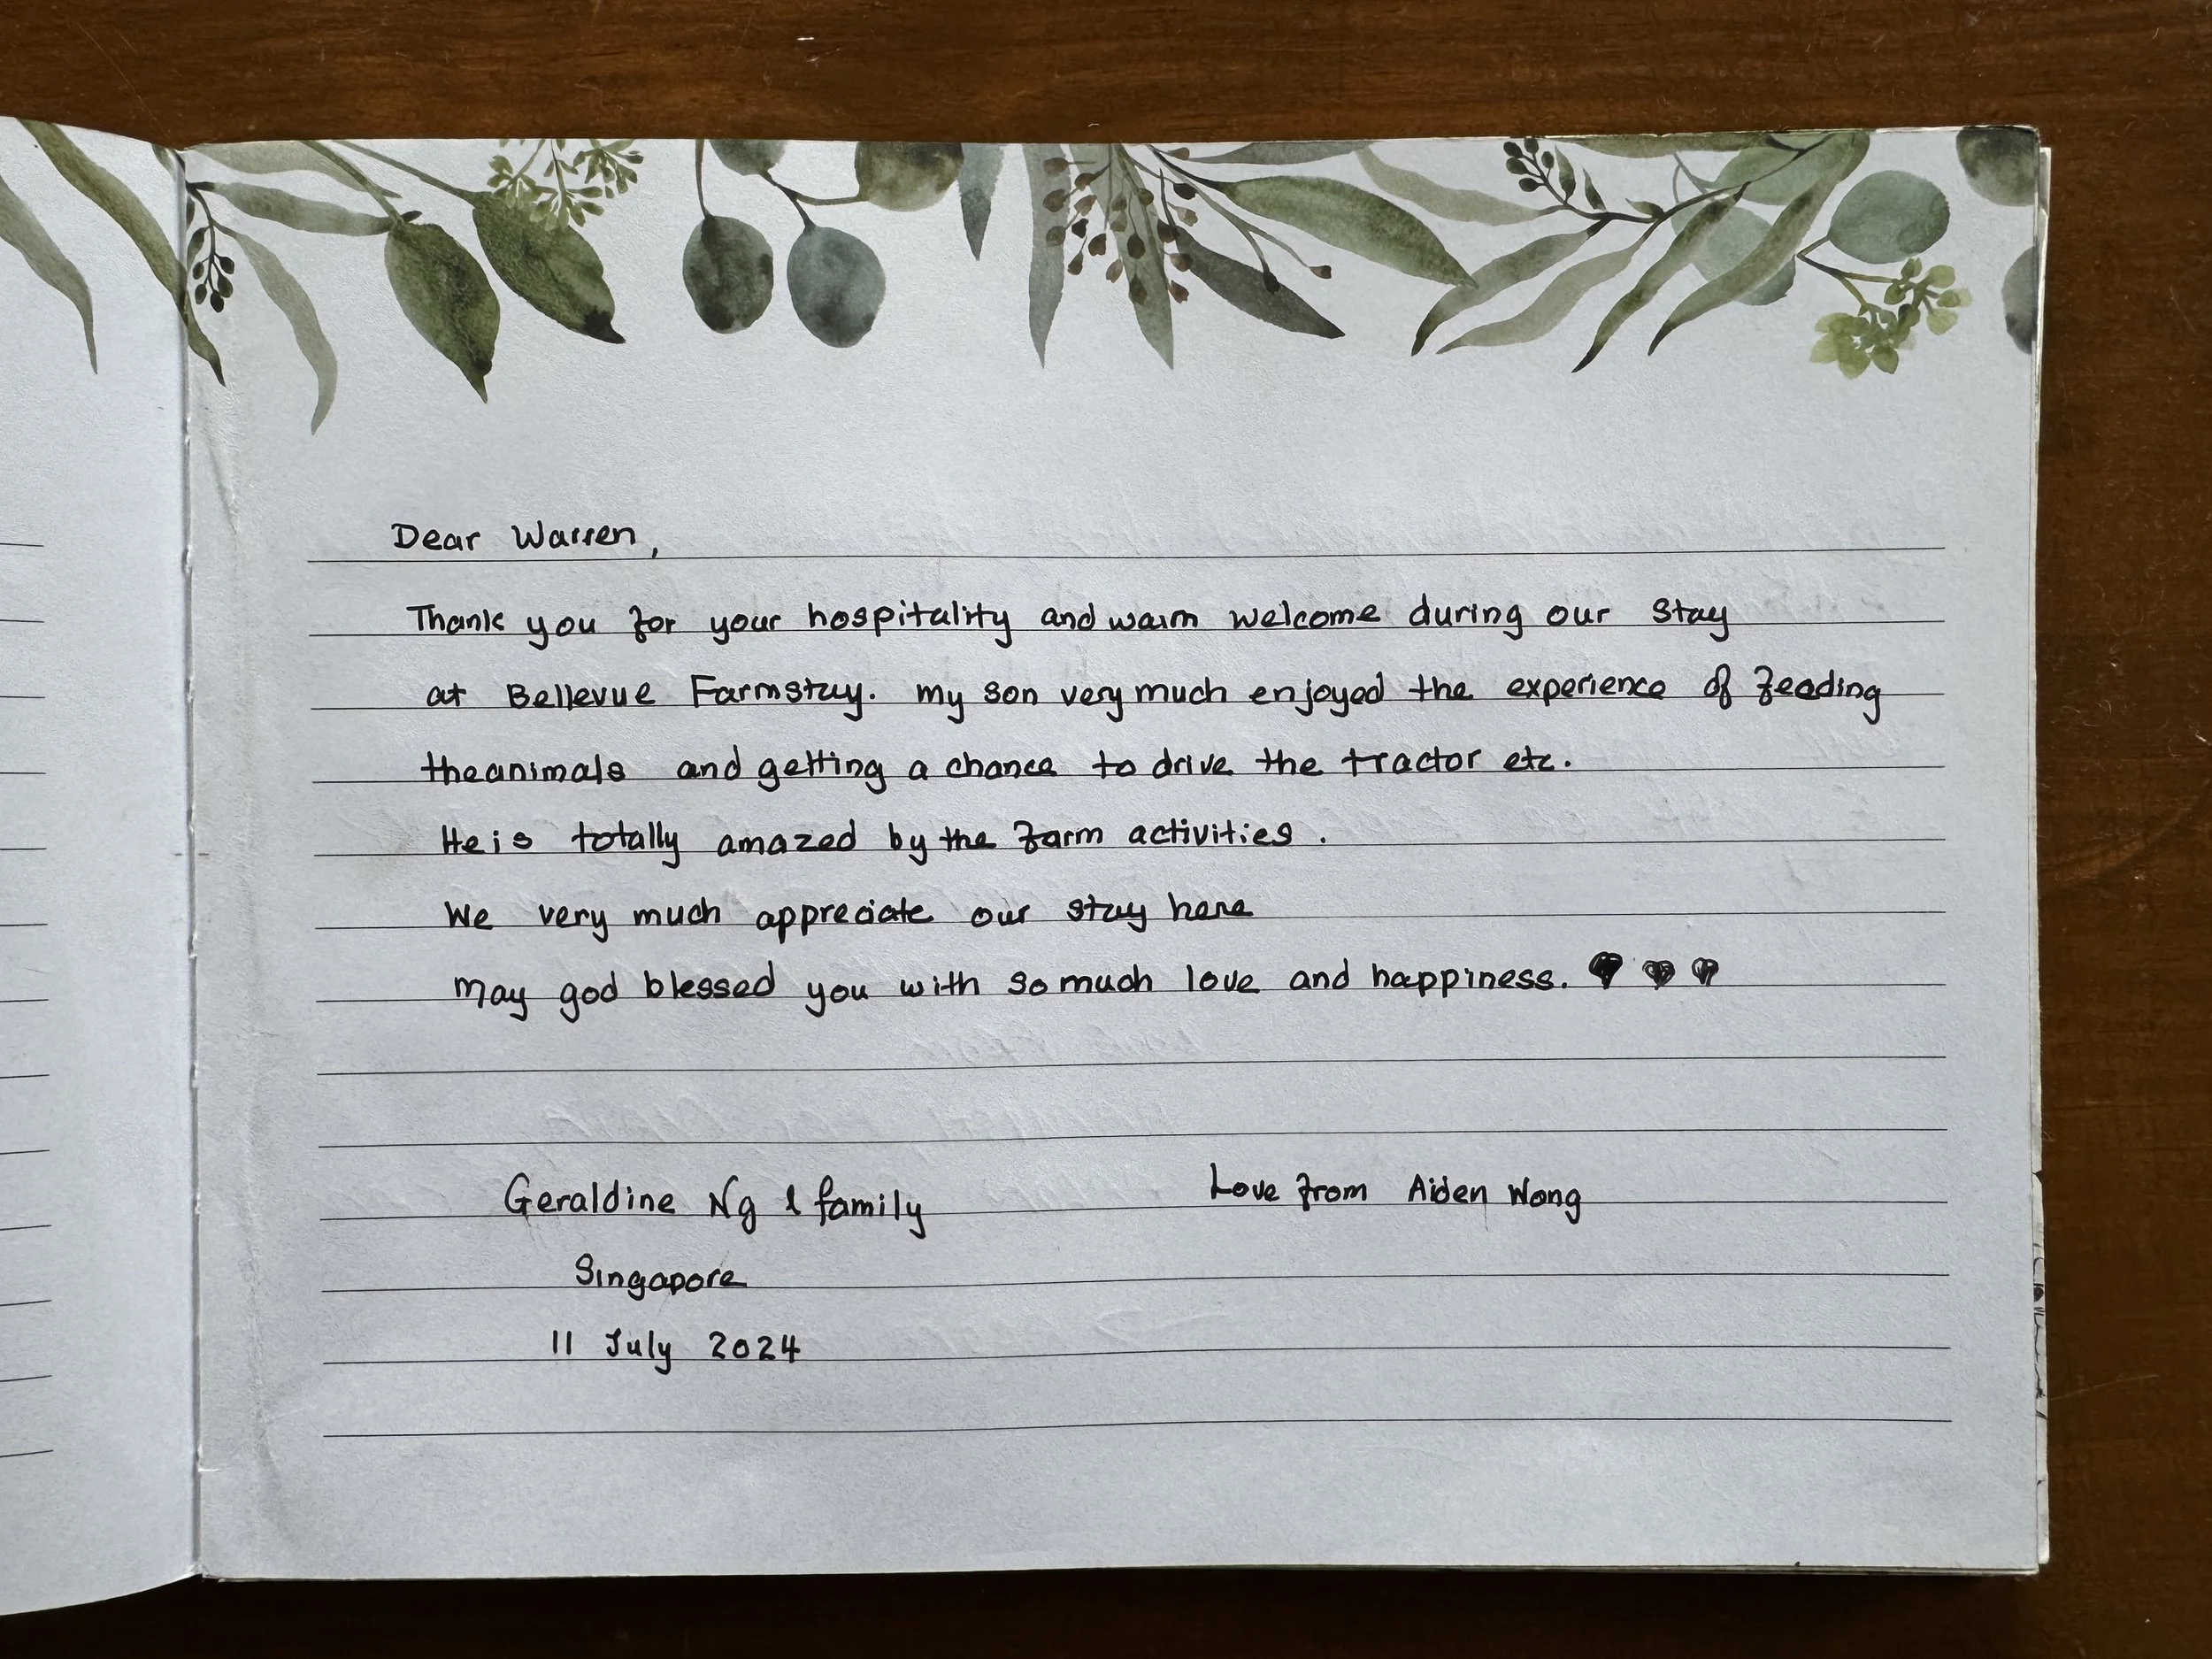 Dear Warren,
Thank you for your hospitality and warm welcome during our stay
at Bellevue Farmstay. My son very much enjoyed the experience of feeding
the animals and getting a chance to drive the tractor etc.
He is totally amazed by the farm activities.
We very much appreciate our stay here
May god blessed you with so much love and happiness. ♥ ♥ ♥
Geraldine Ng & family
Love from Aiden Wong
Singapore
11 July 2024